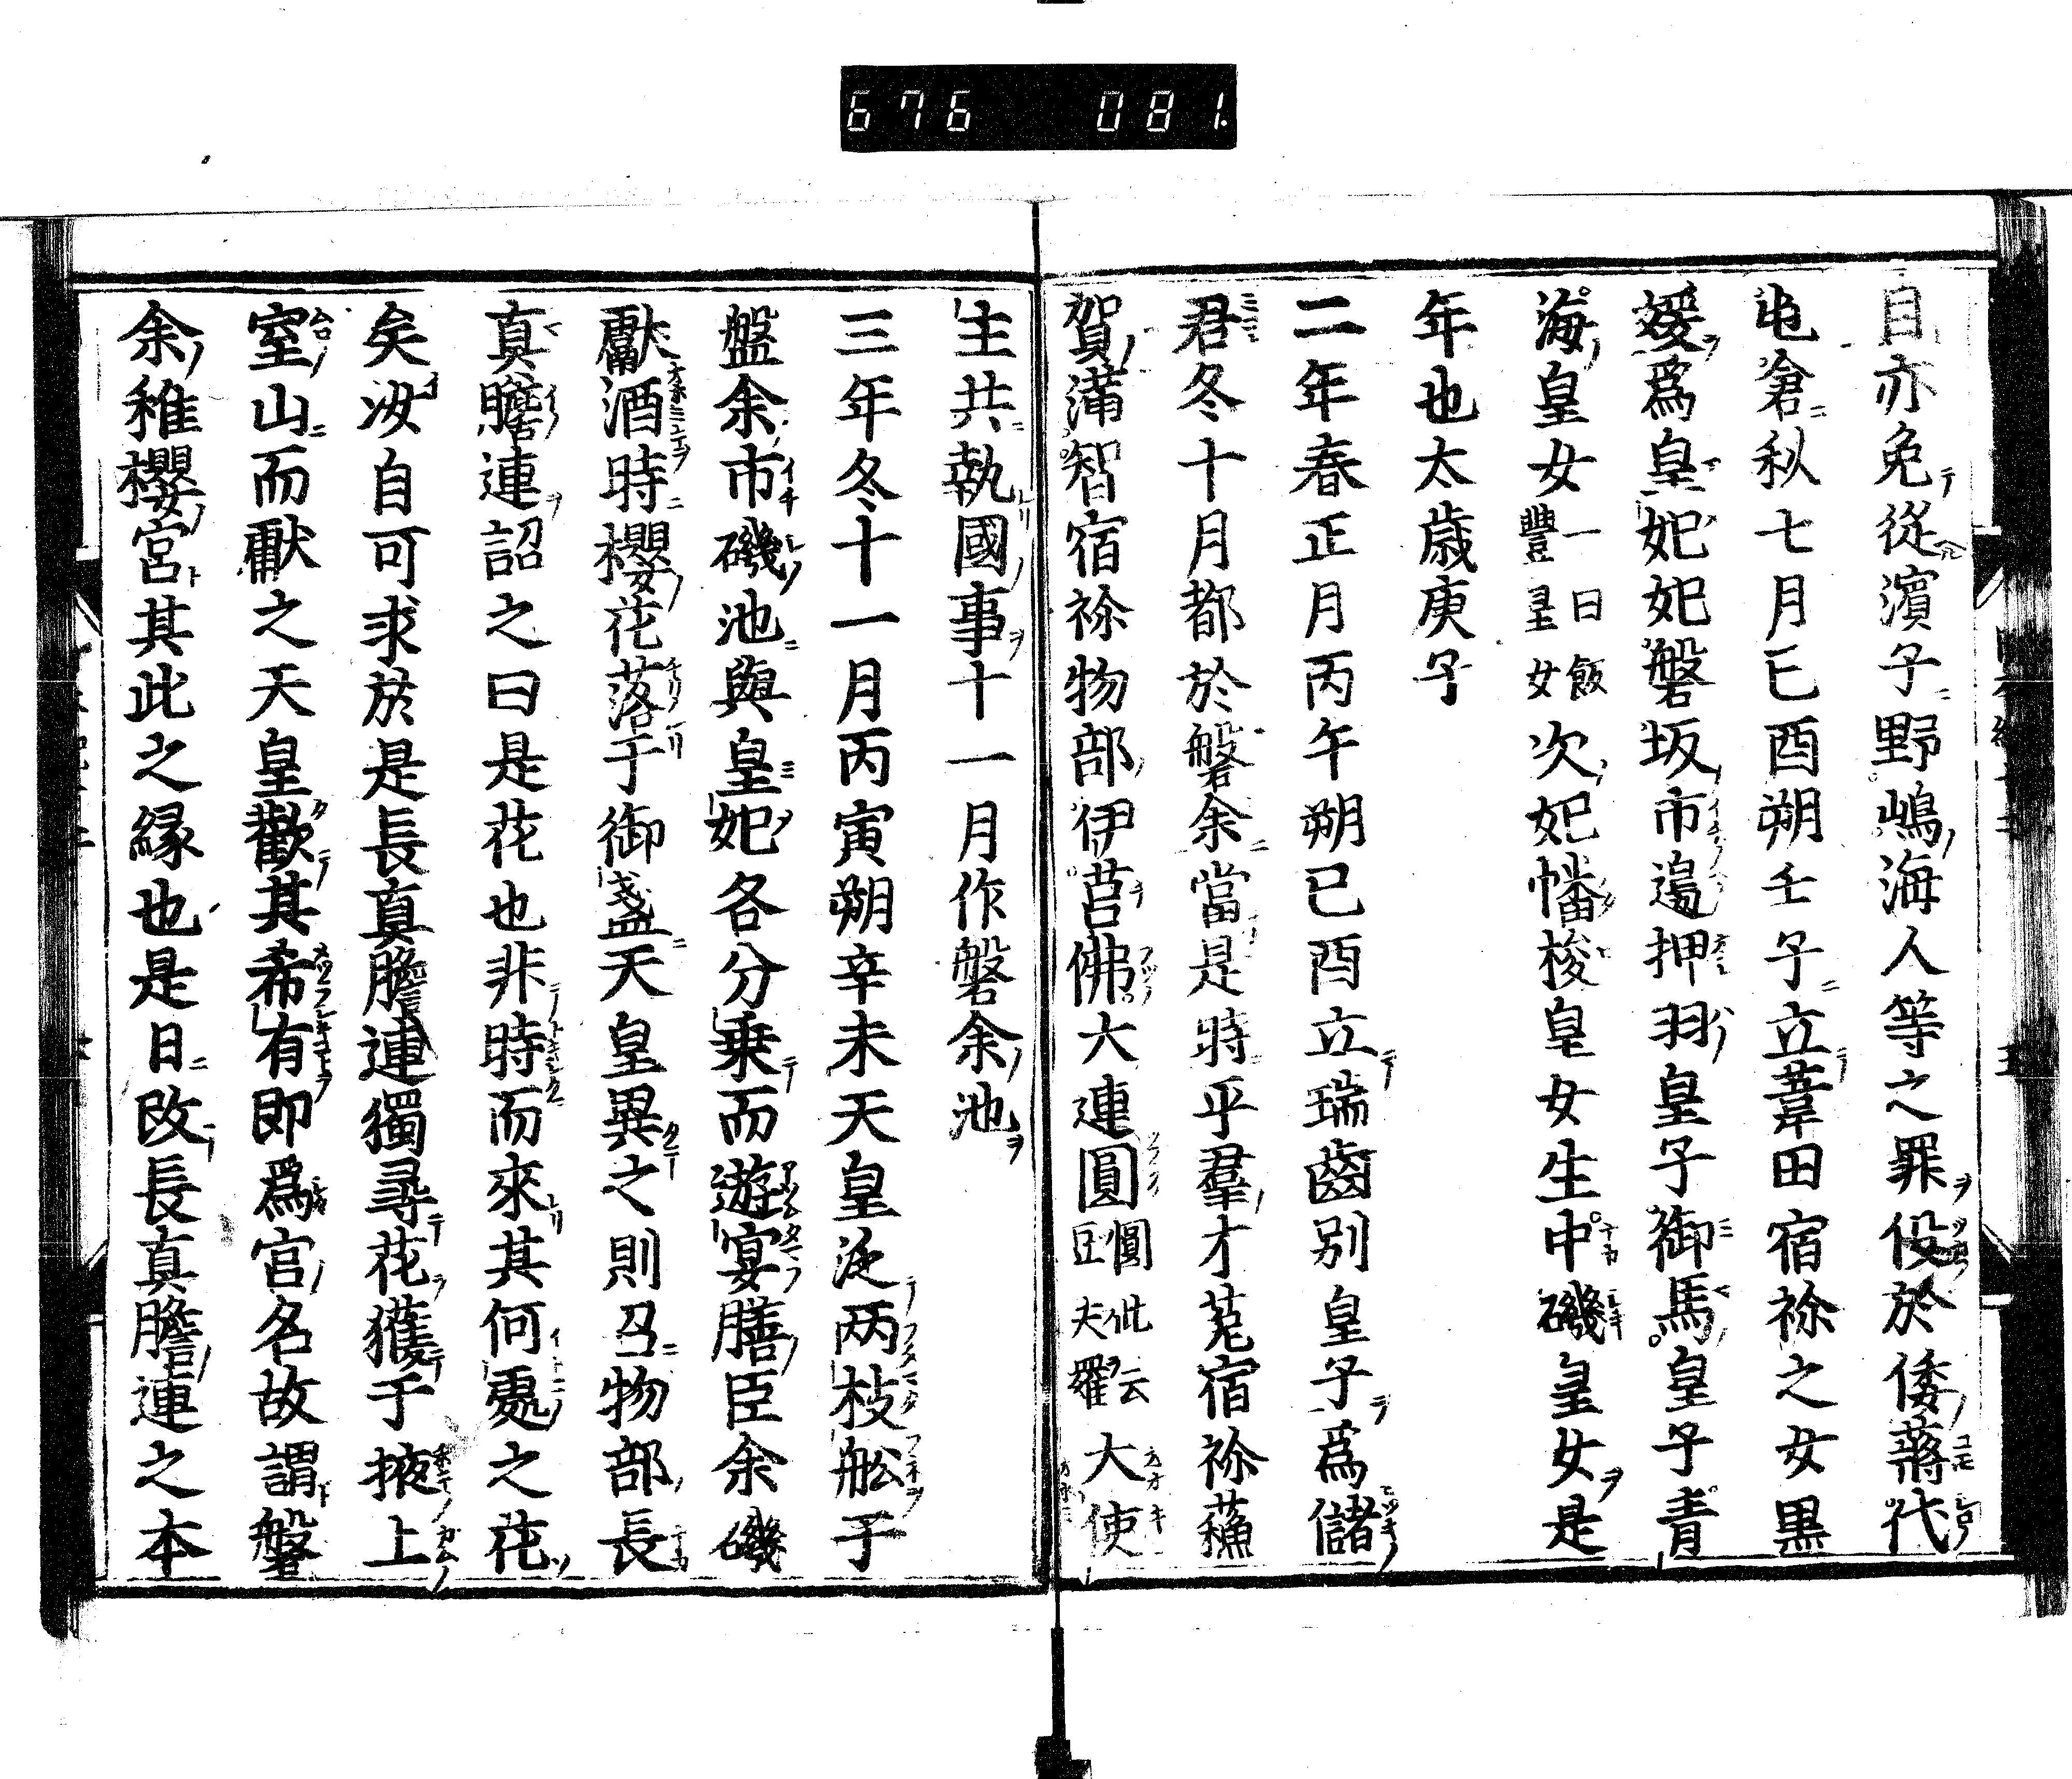 676 081.
自亦免從濱子野嶋海人等之罪役於倭蔣代
屯倉秋七月己酉朔壬子立葦田宿祢之女黒
媛爲皇妃妃磐坂市邊押羽皇子御馬皇子青
海皇女一曰飯豐皇女次妃幡梭皇女生中磯皇女是
年也太歳庚子
二年春正月丙午朔己酉立瑞齒別皇子爲儲
君冬十月都於磐余當是時平羣才莵宿祢蘓
賀滿智宿祢物部伊莒佛大連圓圓此云豆夫羅大使
主共執國事十一月作磐余池
三年冬十一月丙寅朔辛未天皇泛两枝舩于
盤余市磯池與皇妃各分乗而遊宴膳臣余磯
獻酒時櫻花落于御盞天皇異之則召物部長
真膽連詔之曰是花也非時而來其何處之花
矣汝自可求於是長真膽連獨尋花獲于掖上
室山而獻之天皇歡其希有即爲宮名故謂磐
余稚櫻宮其此之縁也是日改長真膽連之本